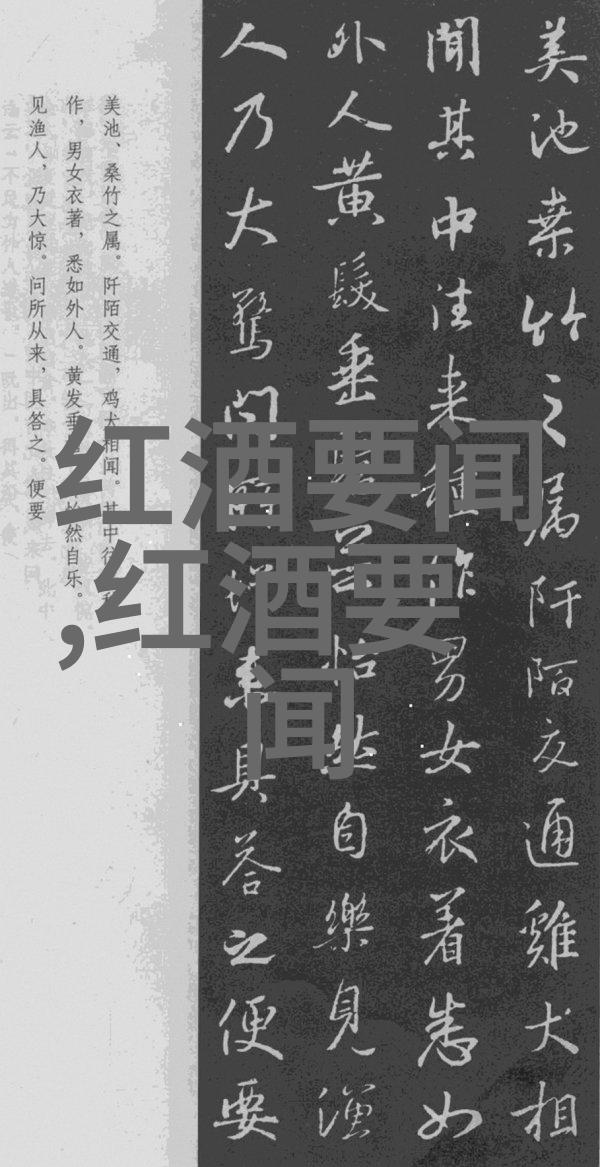 美池桒竹之属阡陌交通雞犬相
聞其中往来種作男女衣着悉如
外人黄髮垂怡然自樂見渔
人乃大驚问来具答之便要
美池、桑竹之属。阡陌交通，鸡犬相闻。其中往
作，男女衣著，悉如外人。黄发垂怡然自乐。
见渔人，乃大惊。问所从来，具答之。便要
红酒要闻
,红酒要
闻